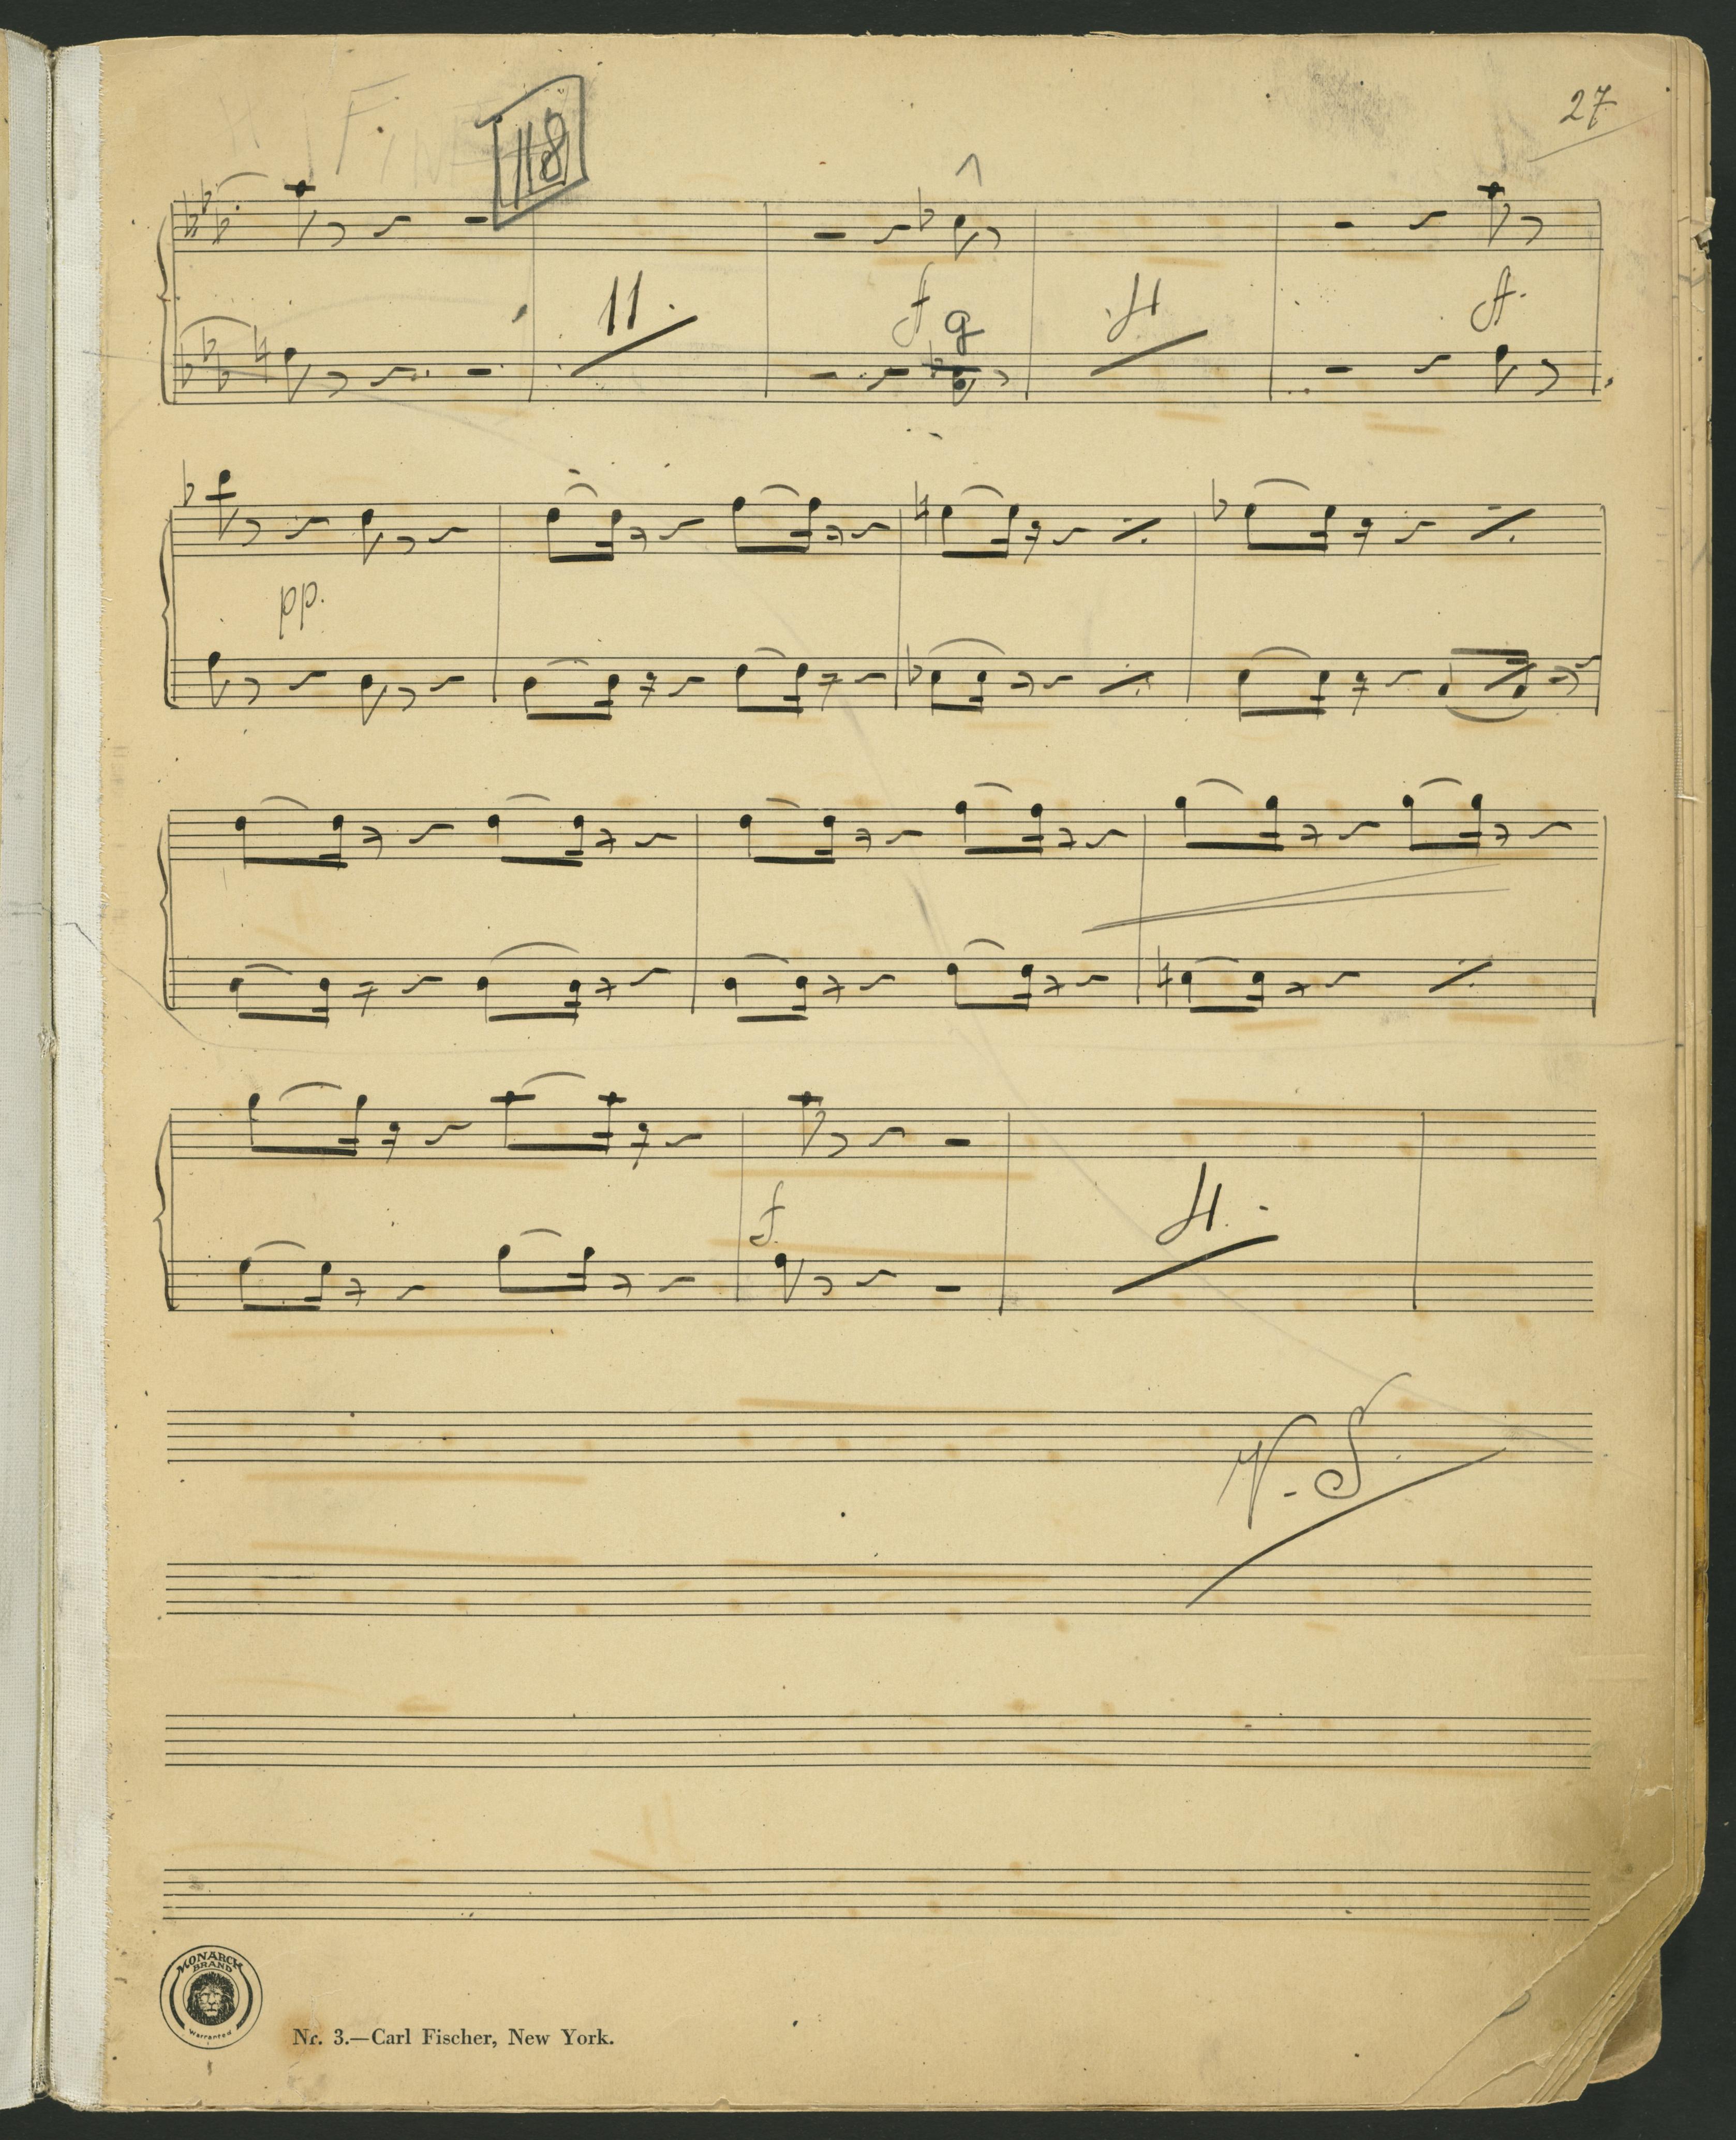 27
118
11.
f g
4
f.
pp.
f.
4.
V.S.
MONARCH
BRAND
Warranted
Nr. 3.—Carl Fischer, New York.